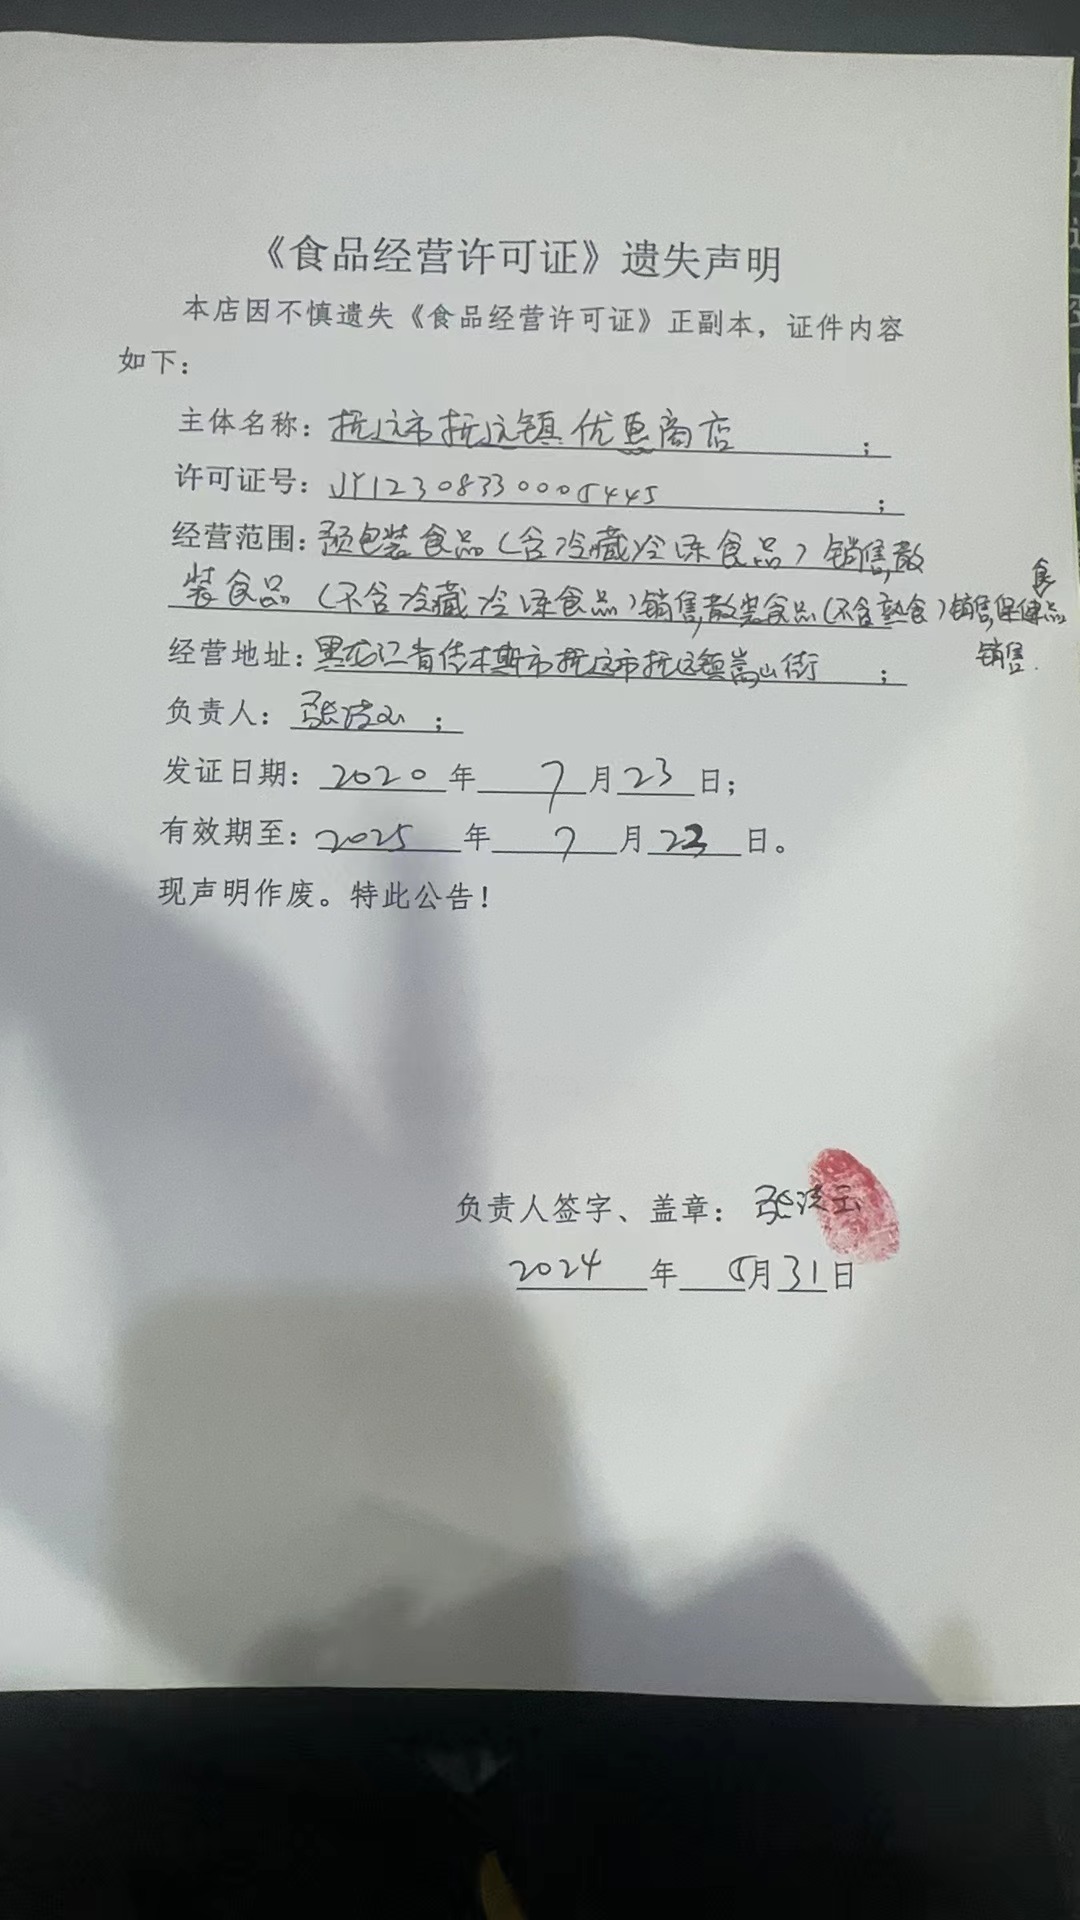 《食品经营许可证》遗失声明
本店因不慎遗失《食品经营许可证》正副本，证件内容
如下：
主体名称：抚远市抚远镇优惠商店；
许可证号：JY12308330005445；
经营范围：预包装食品（含冷藏冷冻食品）销售,散
装食品（不含冷藏冷冻食品）销售,散装食品（不含熟食）销售,保健食品
销售.
经营地址：黑龙江省佳木斯市抚远市抚远镇嵩山街；
负责人：张洪玉；
发证日期：2020年7月23日；
有效期至：2025年7月22日。
现声明作废。特此公告！
负责人签字、盖章：张洪玉
2024年5月31日